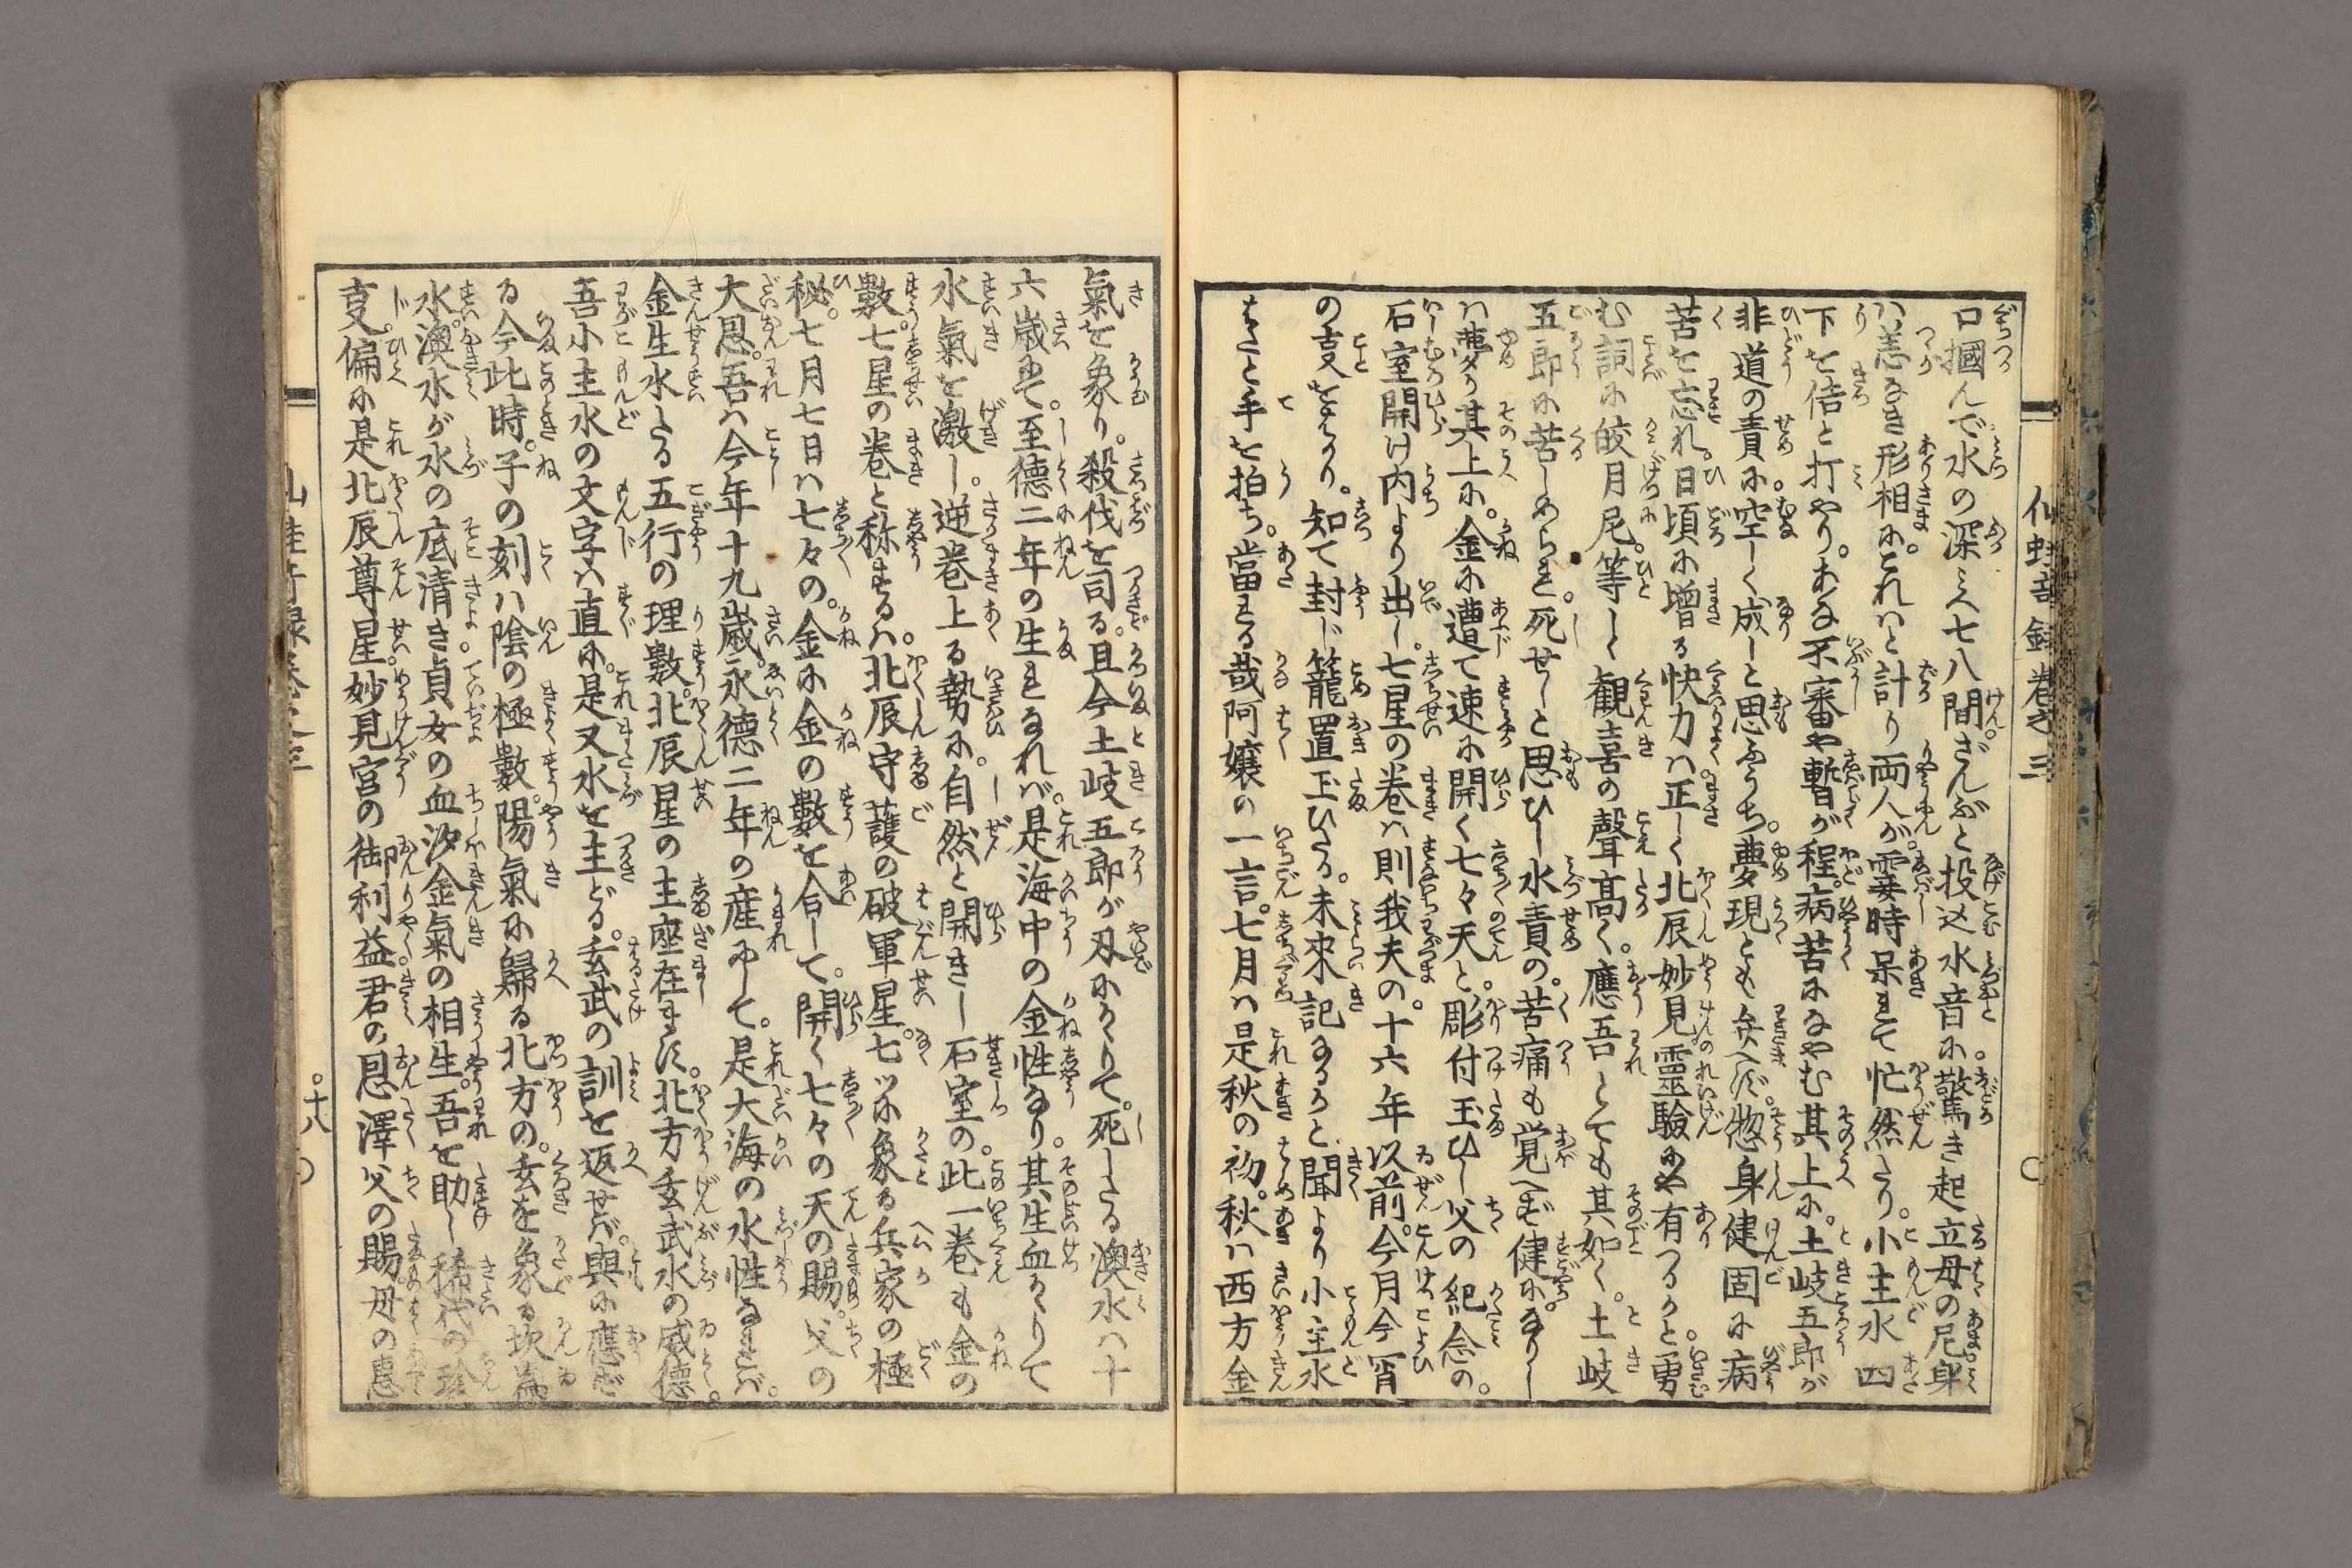 仙蛙奇録巻之三
口摑んで水の深さ七八間ざんぶと投込水音に驚き起立母の尼身
ハ恙なき形相に。これハと計り両人が。霎時呆れて忙然たり。小主水四
下を佶と打やり。あな不審や暫が程。病苦になやむ其上に。土岐五郎が
非道の責に。空しく成しと思ふうち。夢現とも弁へず。惣身健固に病
苦を忘れ。日頃に増る快力ハ正しく北辰妙見靈驗にや有つるかと。勇
む詞に皎月尼。等しく観喜の聲高く。應吾とても其如く。土岐
五郎に苦しめられ。死せしと思ひし水責の。苦痛も覚へず健に。なりし
ハ夢か其上に。金に遭て速に開く七々天と。彫付玉ひし父の紀念の。
石室開け内より出し。七星の巻ハ則我夫の。十六年以前。今月今宵
の㕝をはかり。知て封じ籠置玉ひたる。未來記なるかと聞より小主水
はたと手を拍ち。當れる哉阿嬢の一言。七月ハ是秋の初。秋ハ西方金
氣を象り。殺伐を司る。且今土岐五郎が刃にかゝりて。死したる澳水ハ十
六歳にて。至徳二年の生れなれバ。是海中の金性なり。其生血かゝりて
水氣を激し。逆巻上る勢に。自然と開きし石室の。此一巻も金の
數。七星の巻と称するハ。北辰守護の破軍星。七ツに象る兵家の極
秘。七月七日ハ七々の。金に金の數を合して。開く七々の天の賜。父の
大恩。吾ハ今年十九歳。永徳二年の産にして。是大海の水性なれバ。
金生水たる五行の理數。北辰星の主座在ます。北方玄武水の威徳。
吾小主水の文字ハ直に。是又水を主どる。玄武の訓を返せバ。與に應ず
る今此時。子の刻ハ陰の極數。陽氣に歸る北方の。玄を象る坎爲
水。澳水が水の底清き貞女の血汐金氣の相生。吾を助し稀代の珍
㕝。偏に是北辰尊星。妙見宮の御利益君の恩澤父の賜。母の恵
○十八